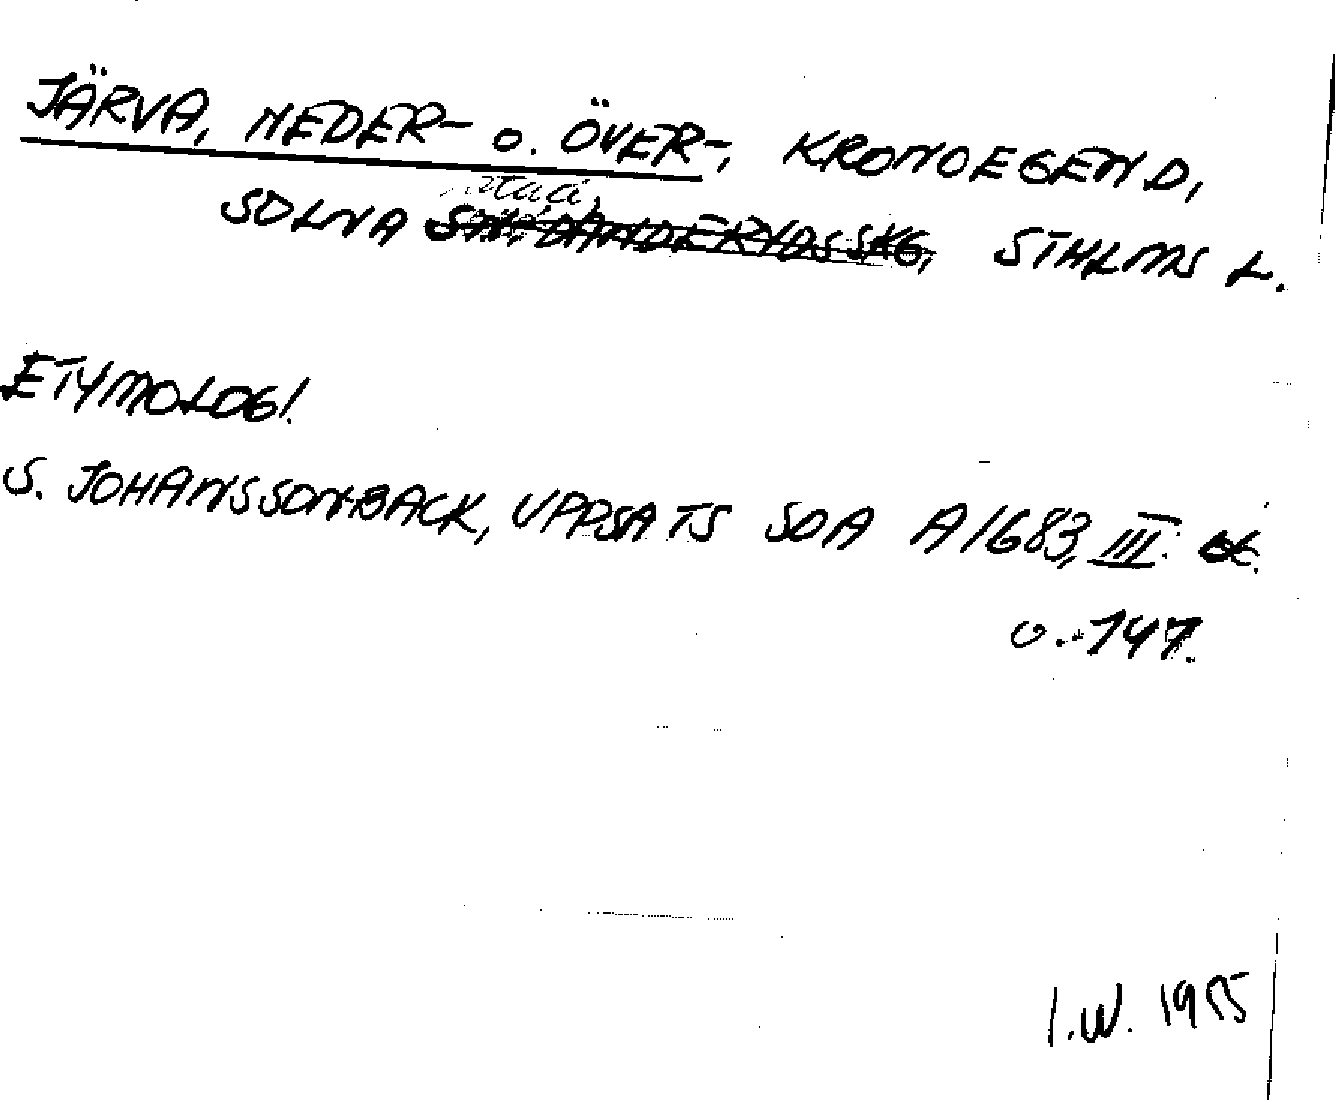 JÄRVA, NEDER- o. ÖVER-, KRONOEGEND,
stad,
SOLNA SN, DANDERYDS SKG, STHLMS L.
ETYMOLOGI.
S. JOHANSSON-BACK, UPPSATS SOA A1683, III.
o. 147.
I.W. 1955